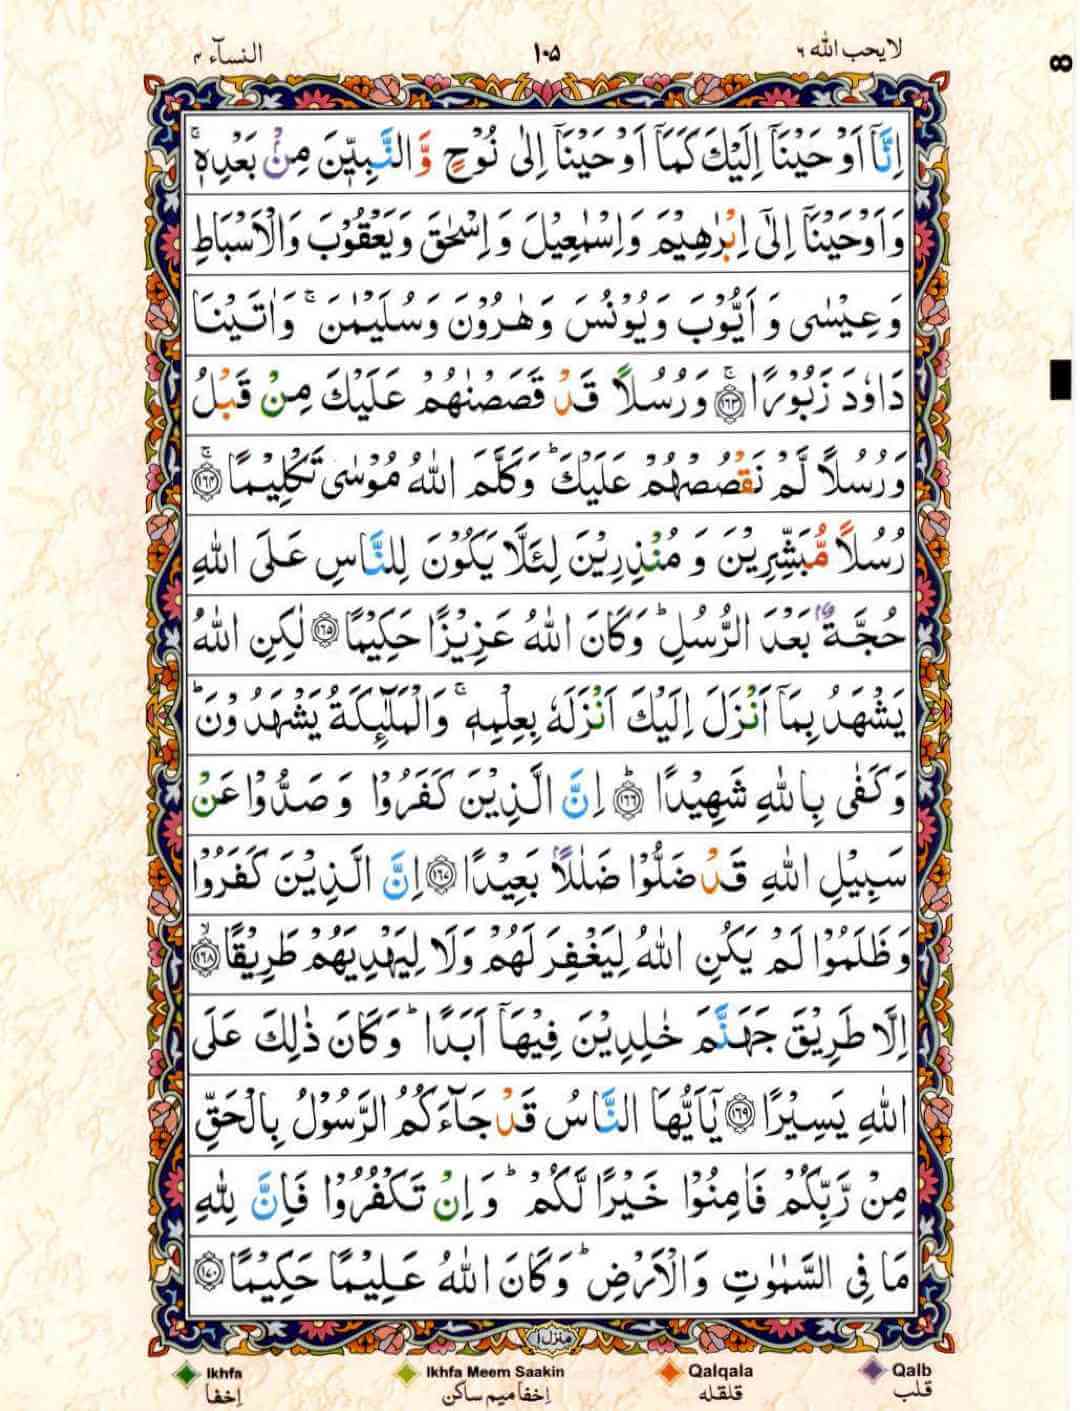 لا يحب الله ٦ ١٠٥ النسآء ٤
8
اِنَّاۤ اَوْحَيْنَاۤ اِلَيْكَ كَمَاۤ اَوْحَيْنَاۤ اِلٰى نُوْحٍ وَّالنَّبِيّٖنَ مِنْۢ بَعْدِهٖ ۚ
وَاَوْحَيْنَاۤ اِلٰٓى اِبْرٰهِيْمَ وَاِسْمٰعِيْلَ وَاِسْحٰقَ وَيَعْقُوْبَ وَالْاَسْبَاطِ
وَعِيْسٰى وَاَيُّوْبَ وَيُوْنُسَ وَهٰرُوْنَ وَسُلَيْمٰنَ ۚ وَاٰتَيْنَا
دَاوٗدَ زَبُوْرًا ۚ ﴿١٦٣﴾ وَرُسُلًا قَدْ قَصَصْنٰهُمْ عَلَيْكَ مِنْ قَبْلُ
وَرُسُلًا لَّمْ نَقْصُصْهُمْ عَلَيْكَ ؕ وَكَلَّمَ اللّٰهُ مُوْسٰى تَكْلِيْمًا ۚ ﴿١٦٤﴾
رُسُلًا مُّبَشِّرِيْنَ وَمُنْذِرِيْنَ لِئَلَّا يَكُوْنَ لِلنَّاسِ عَلَى اللّٰهِ
حُجَّةٌۢ بَعْدَ الرُّسُلِ ؕ وَكَانَ اللّٰهُ عَزِيْزًا حَكِيْمًا ﴿١٦٥﴾ لٰكِنِ اللّٰهُ
يَشْهَدُ بِمَاۤ اَنْزَلَ اِلَيْكَ اَنْزَلَهٗ بِعِلْمِهٖ ۚ وَالْمَلٰٓئِكَةُ يَشْهَدُوْنَ ؕ
وَكَفٰى بِاللّٰهِ شَهِيْدًا ؕ ﴿١٦٦﴾ اِنَّ الَّذِيْنَ كَفَرُوْا وَصَدُّوْا عَنْ
سَبِيْلِ اللّٰهِ قَدْ ضَلُّوْا ضَلٰلًاۢ بَعِيْدًا ﴿١٦٧﴾ اِنَّ الَّذِيْنَ كَفَرُوْا
وَظَلَمُوْا لَمْ يَكُنِ اللّٰهُ لِيَغْفِرَ لَهُمْ وَلَا لِيَهْدِيَهُمْ طَرِيْقًا ۙ ﴿١٦٨﴾
اِلَّا طَرِيْقَ جَهَنَّمَ خٰلِدِيْنَ فِيْهَاۤ اَبَدًا ؕ وَكَانَ ذٰلِكَ عَلَى
اللّٰهِ يَسِيْرًا ﴿١٦٩﴾ يٰۤاَيُّهَا النَّاسُ قَدْ جَآءَكُمُ الرَّسُوْلُ بِالْحَقِّ
مِنْ رَّبِّكُمْ فَاٰمِنُوْا خَيْرًا لَّكُمْ ؕ وَاِنْ تَكْفُرُوْا فَاِنَّ لِلّٰهِ
مَا فِى السَّمٰوٰتِ وَالْاَرْضِ ؕ وَكَانَ اللّٰهُ عَلِيْمًا حَكِيْمًا ﴿١٧٠﴾
منزل ١
Ikhfa Ikhfa Meem Saakin Qalqala Qalb
اِخفا اِخفا ميم ساكن قلقله قلب